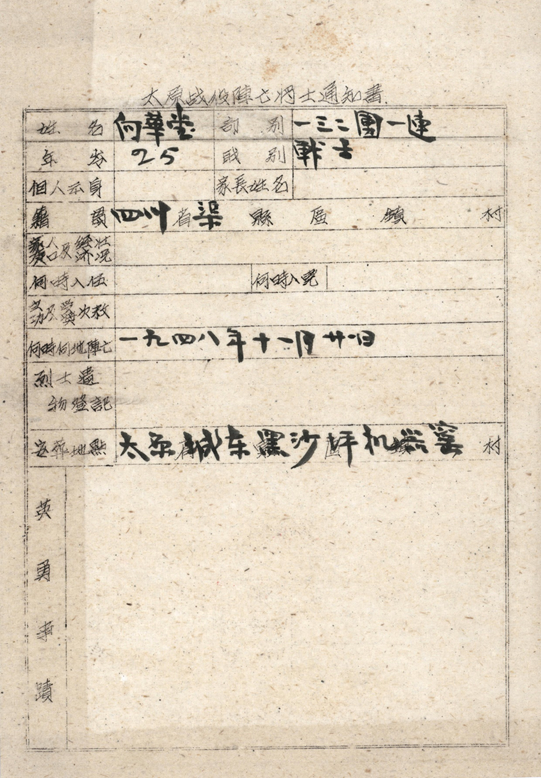 太原战役陣亡将士通知書
姓名 向華堂 部別 一三二團一連
年岁 25 职别 戰士
個人出身 家長姓名
籍貫 四川省渠縣 區 鎮 村
家人口及經济状况
何時入伍 何時入党
立功受奖次数
何時何地陣亡 一九四八年十一月廿日
烈士遺
物登記
安葬地點 太原城东黑沙坪机器窰 村
英勇事蹟